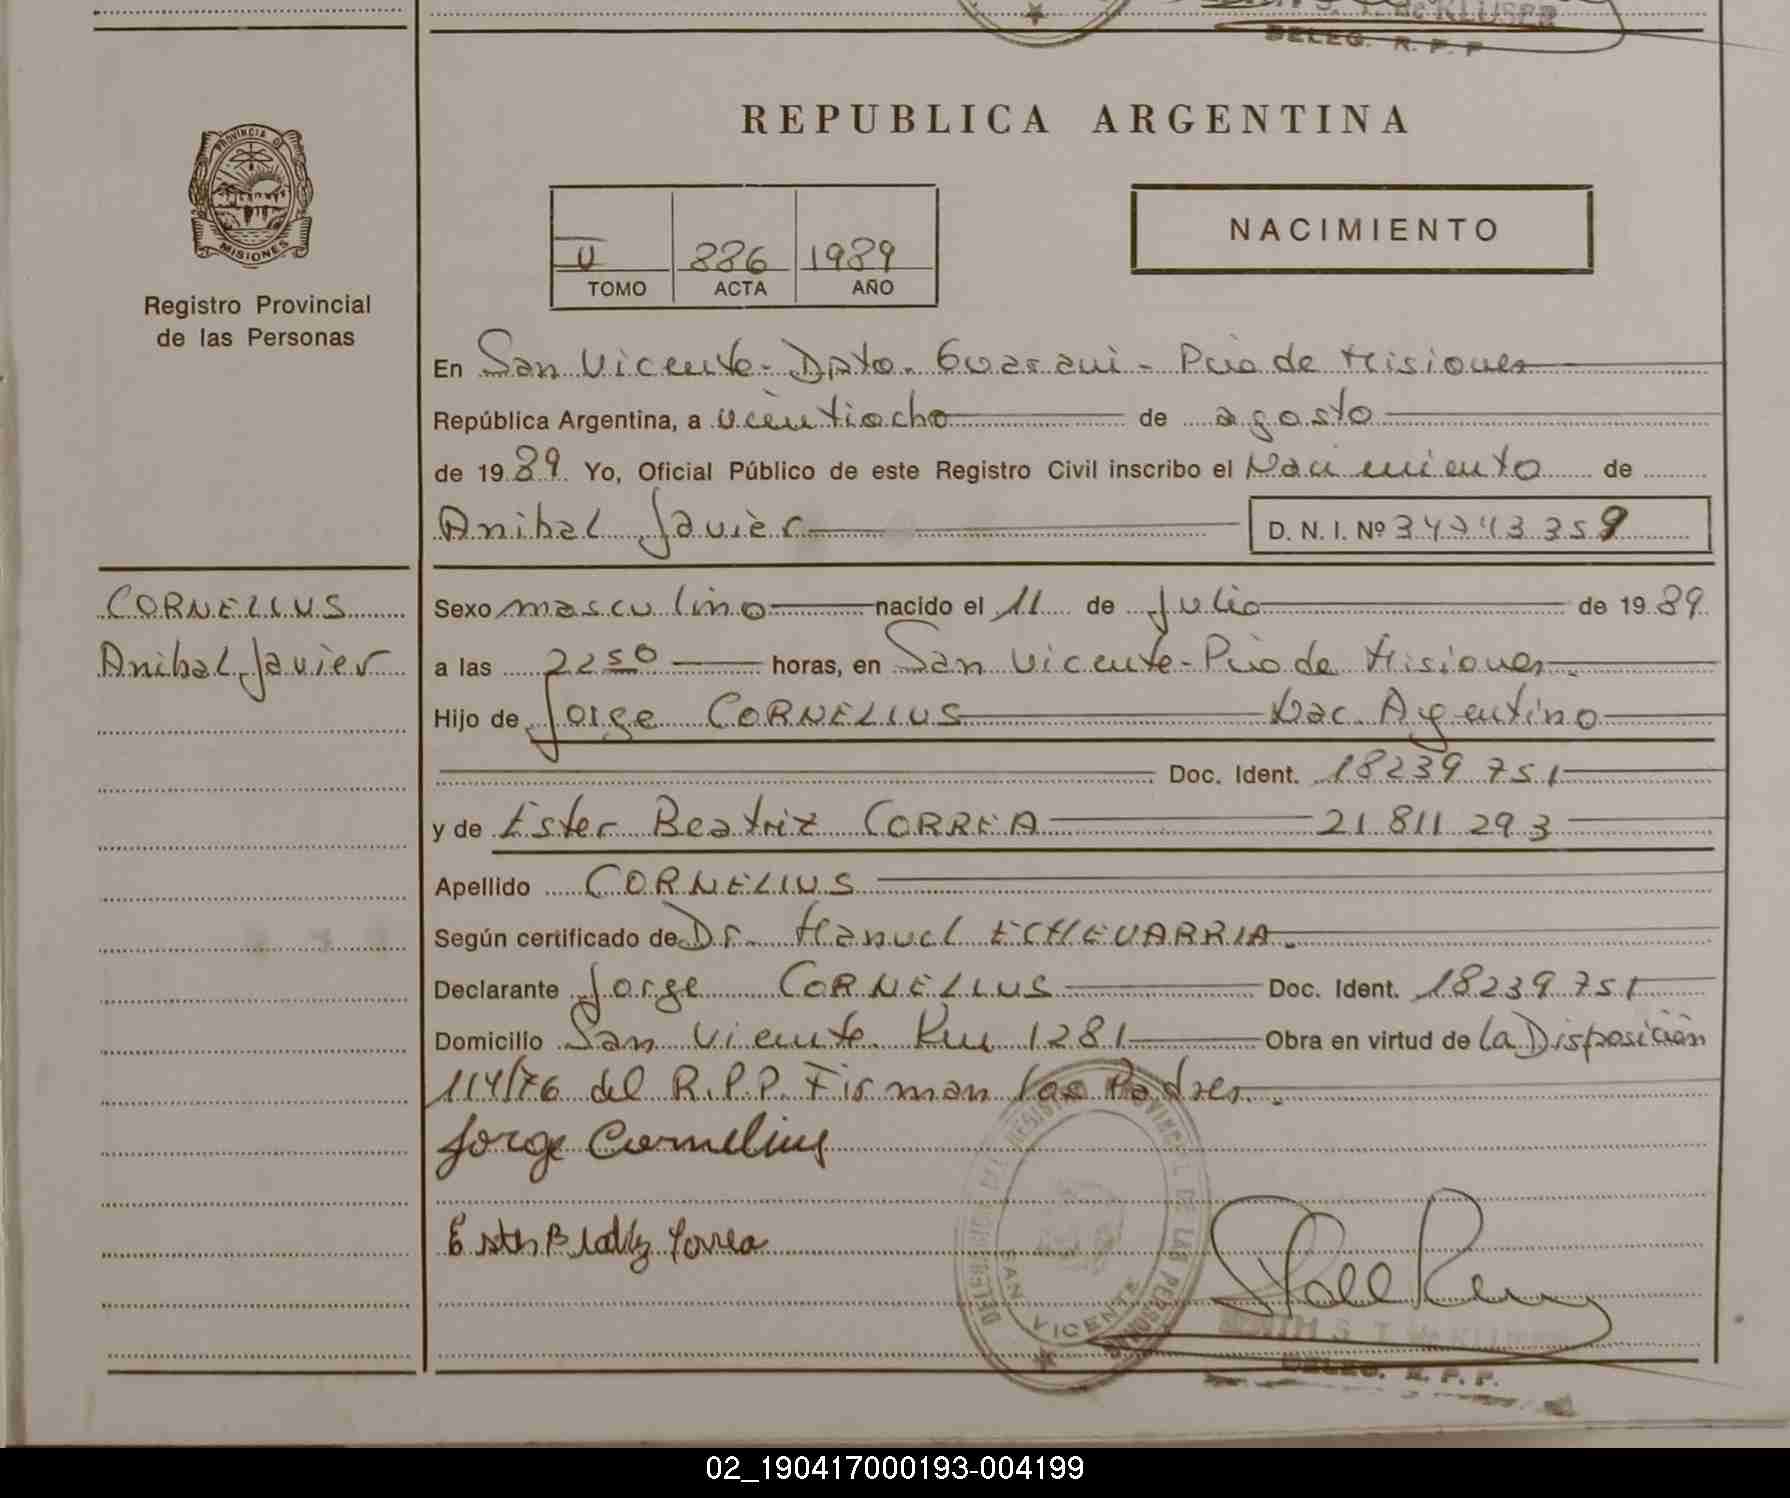 DELEG. R. P. P
PROVINCIA
MISIONES
Registro Provincial
de las Personas
REPUBLICA ARGENTINA
U 886 1989
TOMO ACTA AÑO
NACIMIENTO
En San Vicente - Dpto. Guarani - Pcia de Misiones
República Argentina, a veintiocho de agosto
de 1989 Yo, Oficial Público de este Registro Civil inscribo el Nacimiento de
Anibal Javier D. N. I. Nº 34743359
CORNELIUS
Anibal Javier
Sexo masculino nacido el 11 de Julio de 1989
a las 22 50 horas, en San Vicente - Pcia de Misiones.
Hijo de Jorge CORNELIUS Nac. Argentino
Doc. Ident. 18239751
y de Ester Beatriz CORREA 21 811 293
Apellido CORNELIUS
Según certificado de Dr. Manuel ECHEVARRIA.
Declarante Jorge CORNELIUS Doc. Ident. 18239751
Domicilio San Vicente Km 1281 Obra en virtud de La Disposición
114/76 del R.P.P. Firman los Padres.
Jorge Cornelius
Ester Beatriz Correa
DELEGACION DEL REGISTRO PROVINCIAL DE LAS PERSONAS
SAN VICENTE
DELEG. R. P. P.
02_190417000193-004199